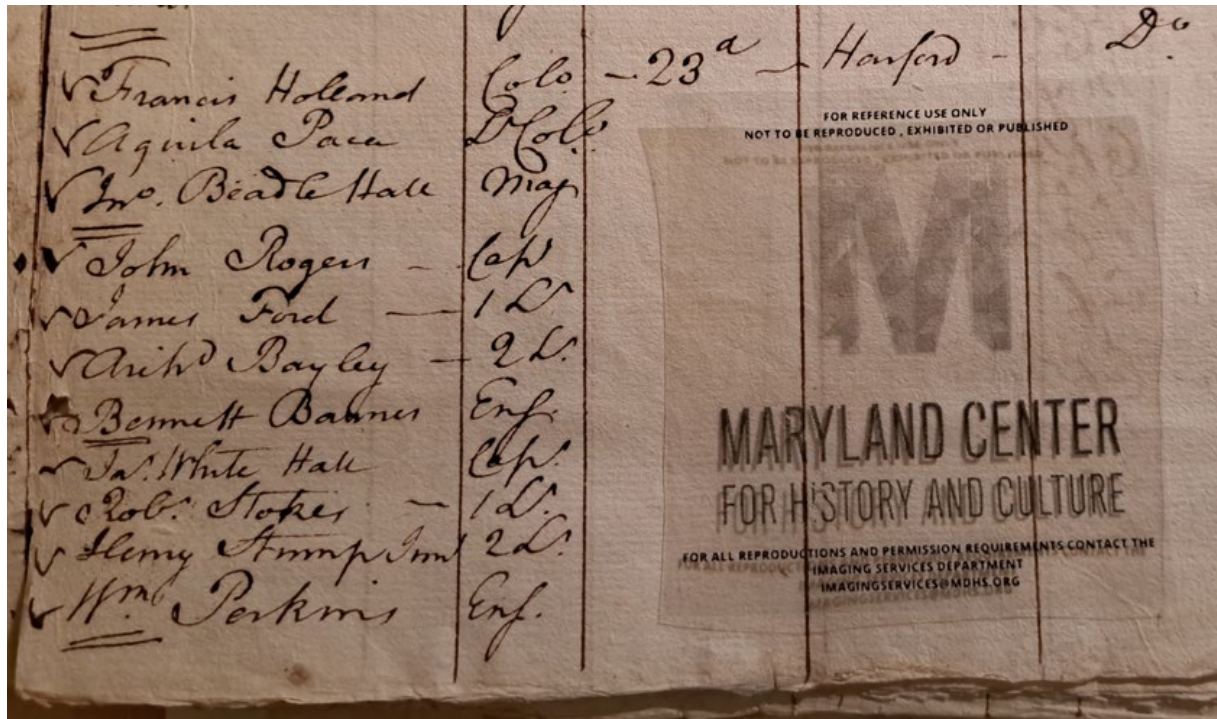 ✓ Francis Holland Colo. – 23d – Harford – Do
✓ Aquila Paca LtColo
✓ Jno. Beadle Hall Maj
✓ John Rogers – Cap
✓ James Ford — 1 Lt
✓ Archd Bayley – 2 Lt.
✓ Bennett Barnes Ens.
✓ Jas. White Hall Cap.
✓ Rob. Stokes – 1 Lt.
✓ Henry Stump Junr 2 Lt.
✓ Wm. Perkins Ens.
FOR REFERENCE USE ONLY
NOT TO BE REPRODUCED, EXHIBITED OR PUBLISHED
M
MARYLAND CENTER
FOR HISTORY AND CULTURE
FOR ALL REPRODUCTIONS AND PERMISSION REQUIREMENTS CONTACT THE
IMAGING SERVICES DEPARTMENT
IMAGINGSERVICES@MDHS.ORG